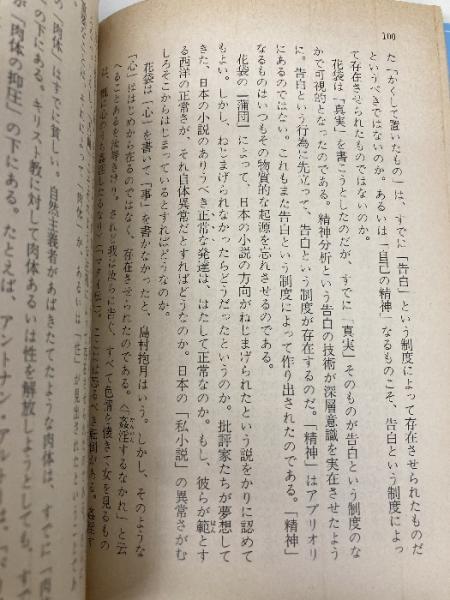 100
た「かくして置いたもの」は、すでに「告白」という制度によって存在させられたものだ
というべきではないのか。あるいは「自己の精神」なるものこそ、告白という制度によっ
て存在させられたものではないのか。
花袋は「真実」を書こうとしたのだが、すでに「真実」そのものが告白という制度のな
かで可視的となったのである。精神分析という告白の技術が深層意識を実在させたよう
に、告白という行為に先立って、告白という制度が存在するのだ。「精神」はアプリオリ
にあるのではない。これもまた告白という制度によって作り出されたのである。「精神」
なるものはいつもその物質的な起源を忘れさせるのである。
花袋の『蒲団』によって、日本の小説の方向がねじまげられたという説をかりに認めて
もよい。しかし、ねじまげられなかったらどうだったというのか。批評家たちが夢想して
きた、日本の小説のありうべき正常な発達は、はたして正常なのか。もし、彼らが範とす
る西洋の正常さが、それ自体異常だとすればどうなのか。日本の「私小説」の異常さがむ
しろそこからはじまっているとすればどうなのか。
花袋は「心」を書いて「事」を書かなかったと、島村抱月はいう。しかし、そのような
「心」ははじめから在るのではなく、存在させられたのである。〈姦淫するなかれ」と云
へることあるを汝等きけり。されど我は汝らに告ぐ、すべて色情を懐きて女を見るもの
は、既に心のうち姦淫したるなり〉
自然主義者があばきたてたような肉体は、すでに「肉
の下にある。キリスト教に対して肉体あるいは性を解放しようと
「肉体の抑圧」の下にある。たとえば、アントナン・アル